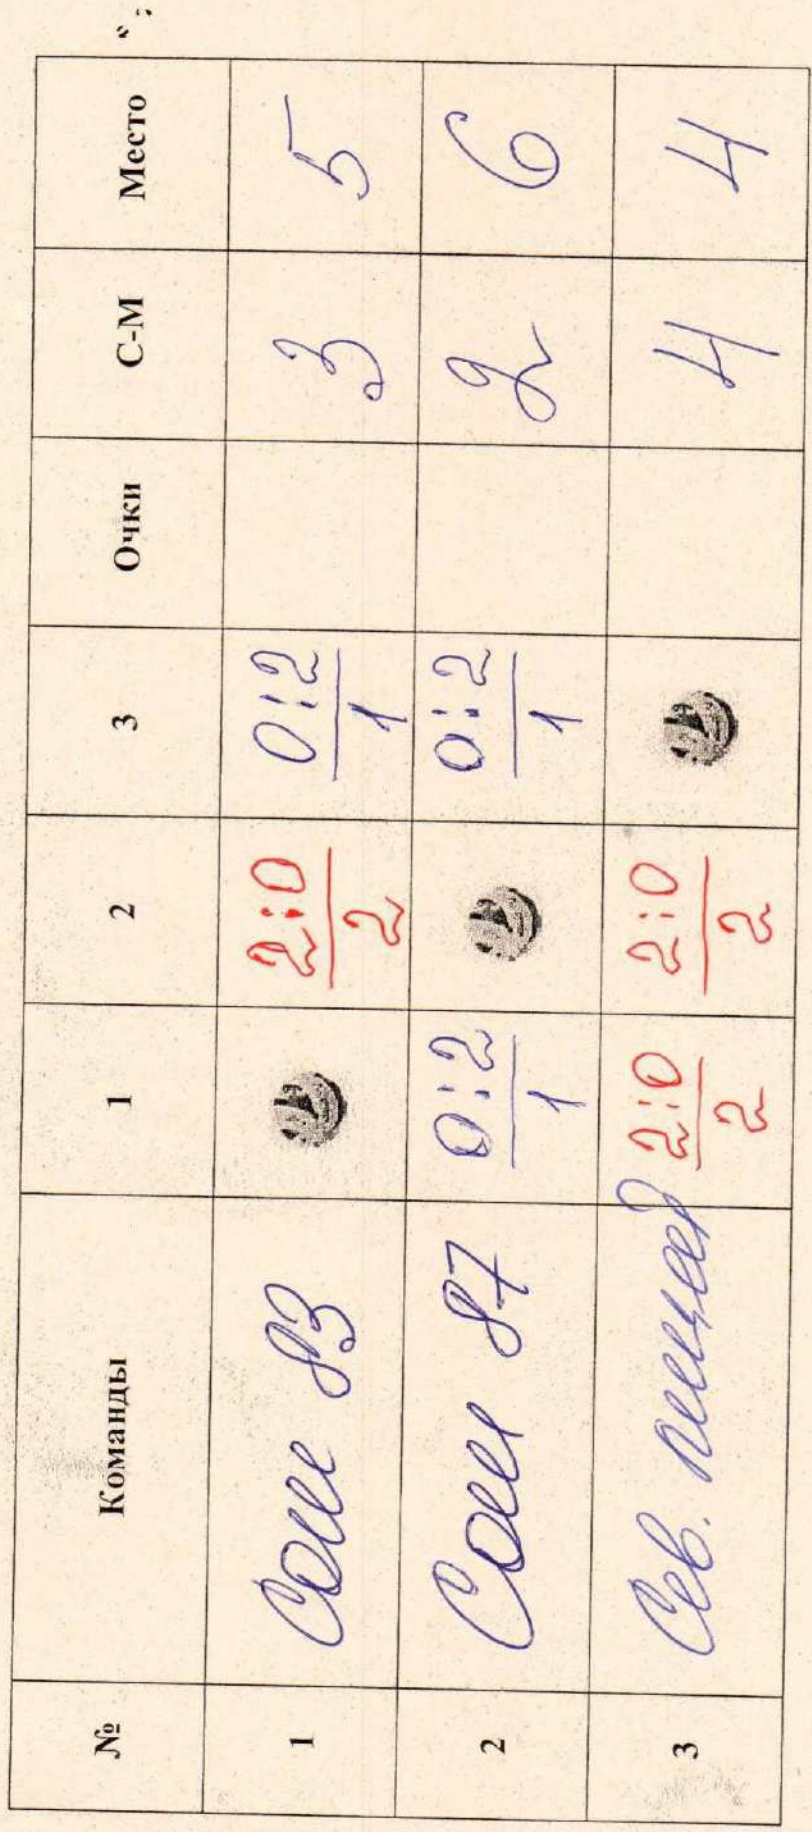 № Команды 1 2 3 Очки С-М Место
1 Сош 83 2:0/2 0:2/1 3 5
2 Сош 87 0:2/1 0:2/1 2 6
3 Сев. лицей 2:0/2 2:0/2 4 4